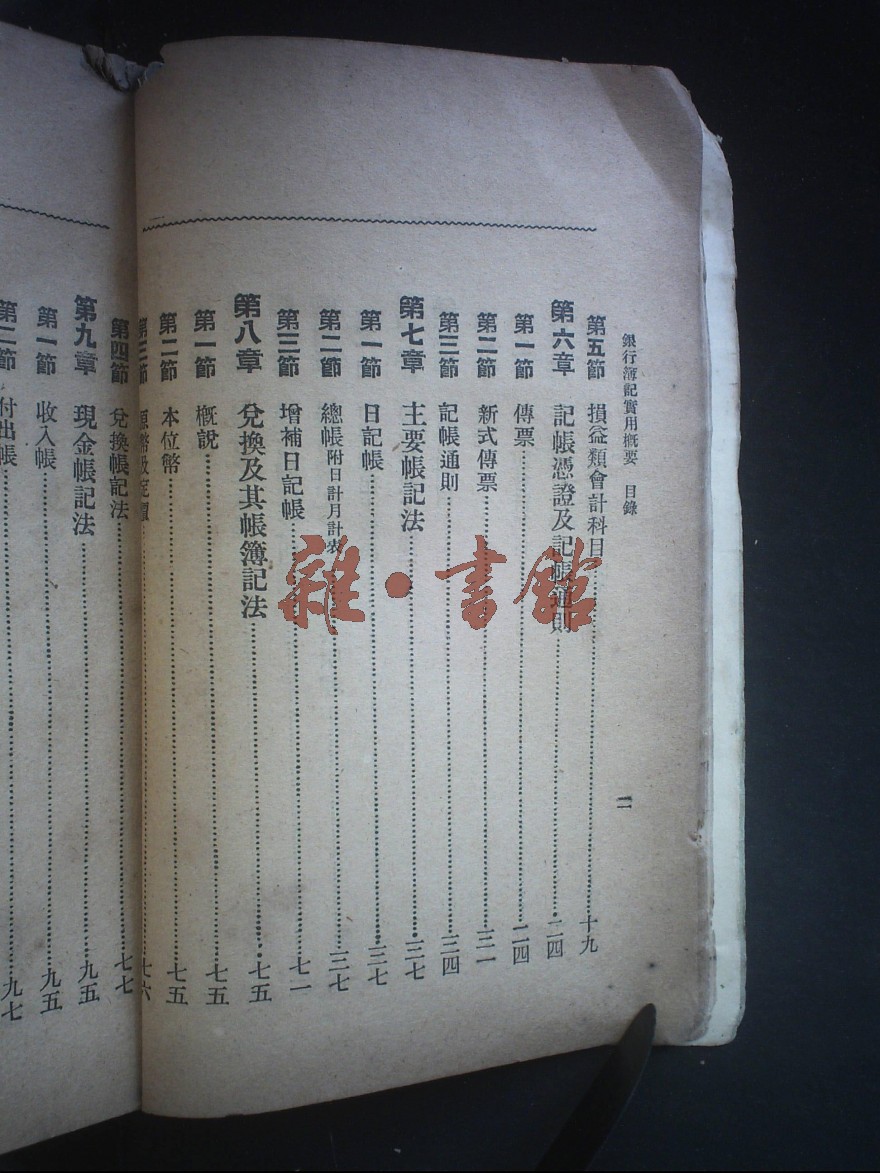 銀行簿記實用概要 目錄
二
第五節 損益類會計科目 十九
第六章 記帳憑證及記帳通則 二四
第一節 傳票 二四
第二節 新式傳票 三一
第三節 記帳通則 三四
第七章 主要帳記法 三七
第一節 日記帳 三七
第二節 總帳附日計月計表 三七
第三節 增補日記帳 七一
第八章 兌換及其帳簿記法 七五
第一節 概說 七五
第二節 本位幣 七五
第三節 七六
第四節 兌換帳記法 七七
第九章 現金帳記法 九五
第一節 收入帳 九五
第二節 付出帳 九七
雜·書館